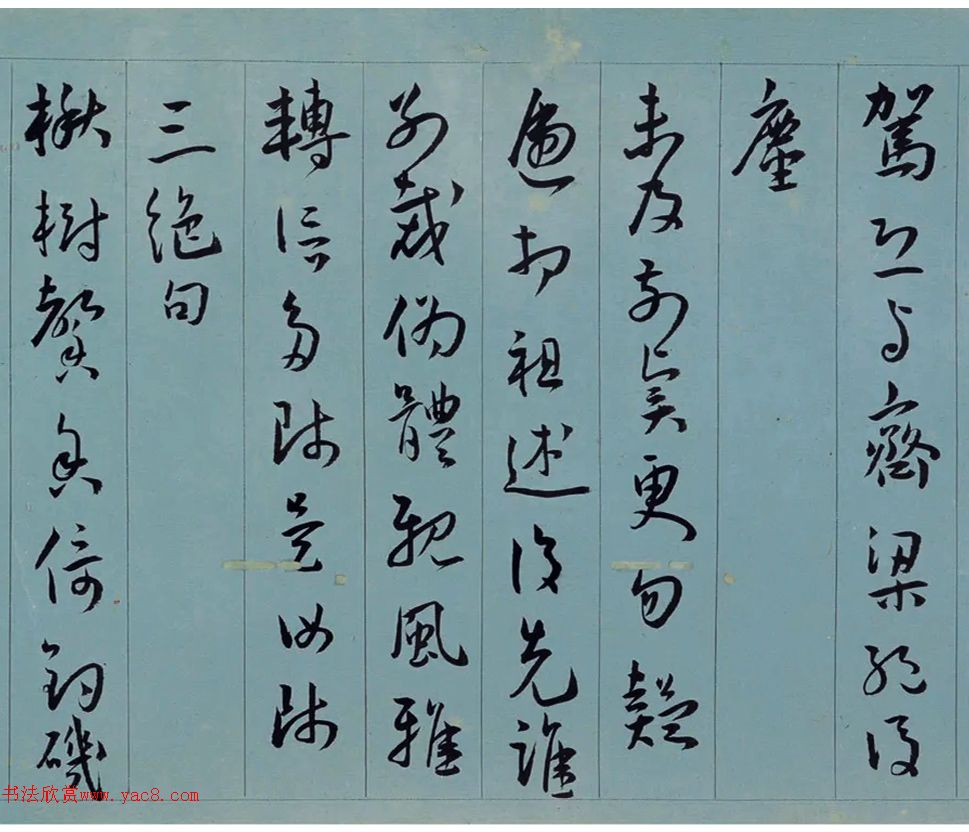 駕恐与齊梁後
塵
未及前賢更勿疑
遞相祖述復先誰
別裁偽體親風雅
轉益多師是汝師
三絕句
楸樹馨香倚釣磯
书法欣赏www.yac8.com